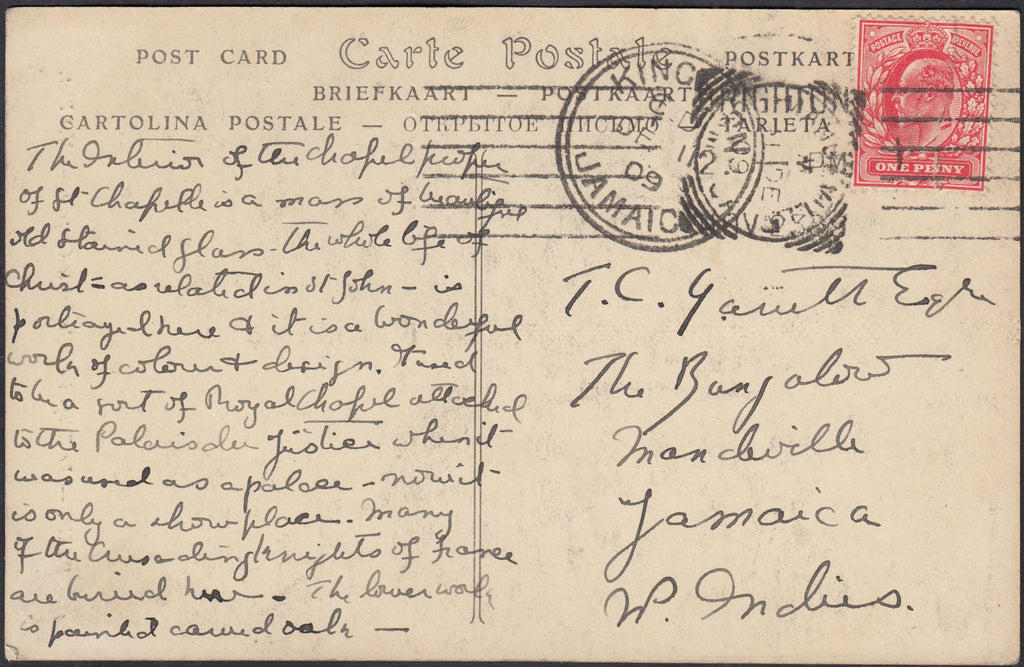 POST CARD Carte Postale POSTKART
BRIEFKAART — POSTKAART
CARTOLINA POSTALE — ОТКРЫТОЕ ПИСЬМО TARJETA
The Interior of the Chapel proper
of St Chapelle is a mass of beautiful
old stained glass – The whole life of
Christ – as related in St John – is
portrayed here & it is a wonderful
work of colour & design. It used
to be a sort of Royal Chapel attached
to the Palais de Justice when it
was used as a palace – now it
is only a show place. Many
of the Crusading Knights of France
are buried here – The lower work
is painted carved oak —
T. C. Garrett Esqre
The Bungalow
Mandeville
Jamaica
W. Indies.
KING
JAMAIC
09
BRIGHTON
DE
POSTAGE REVENUE
ONE PENNY